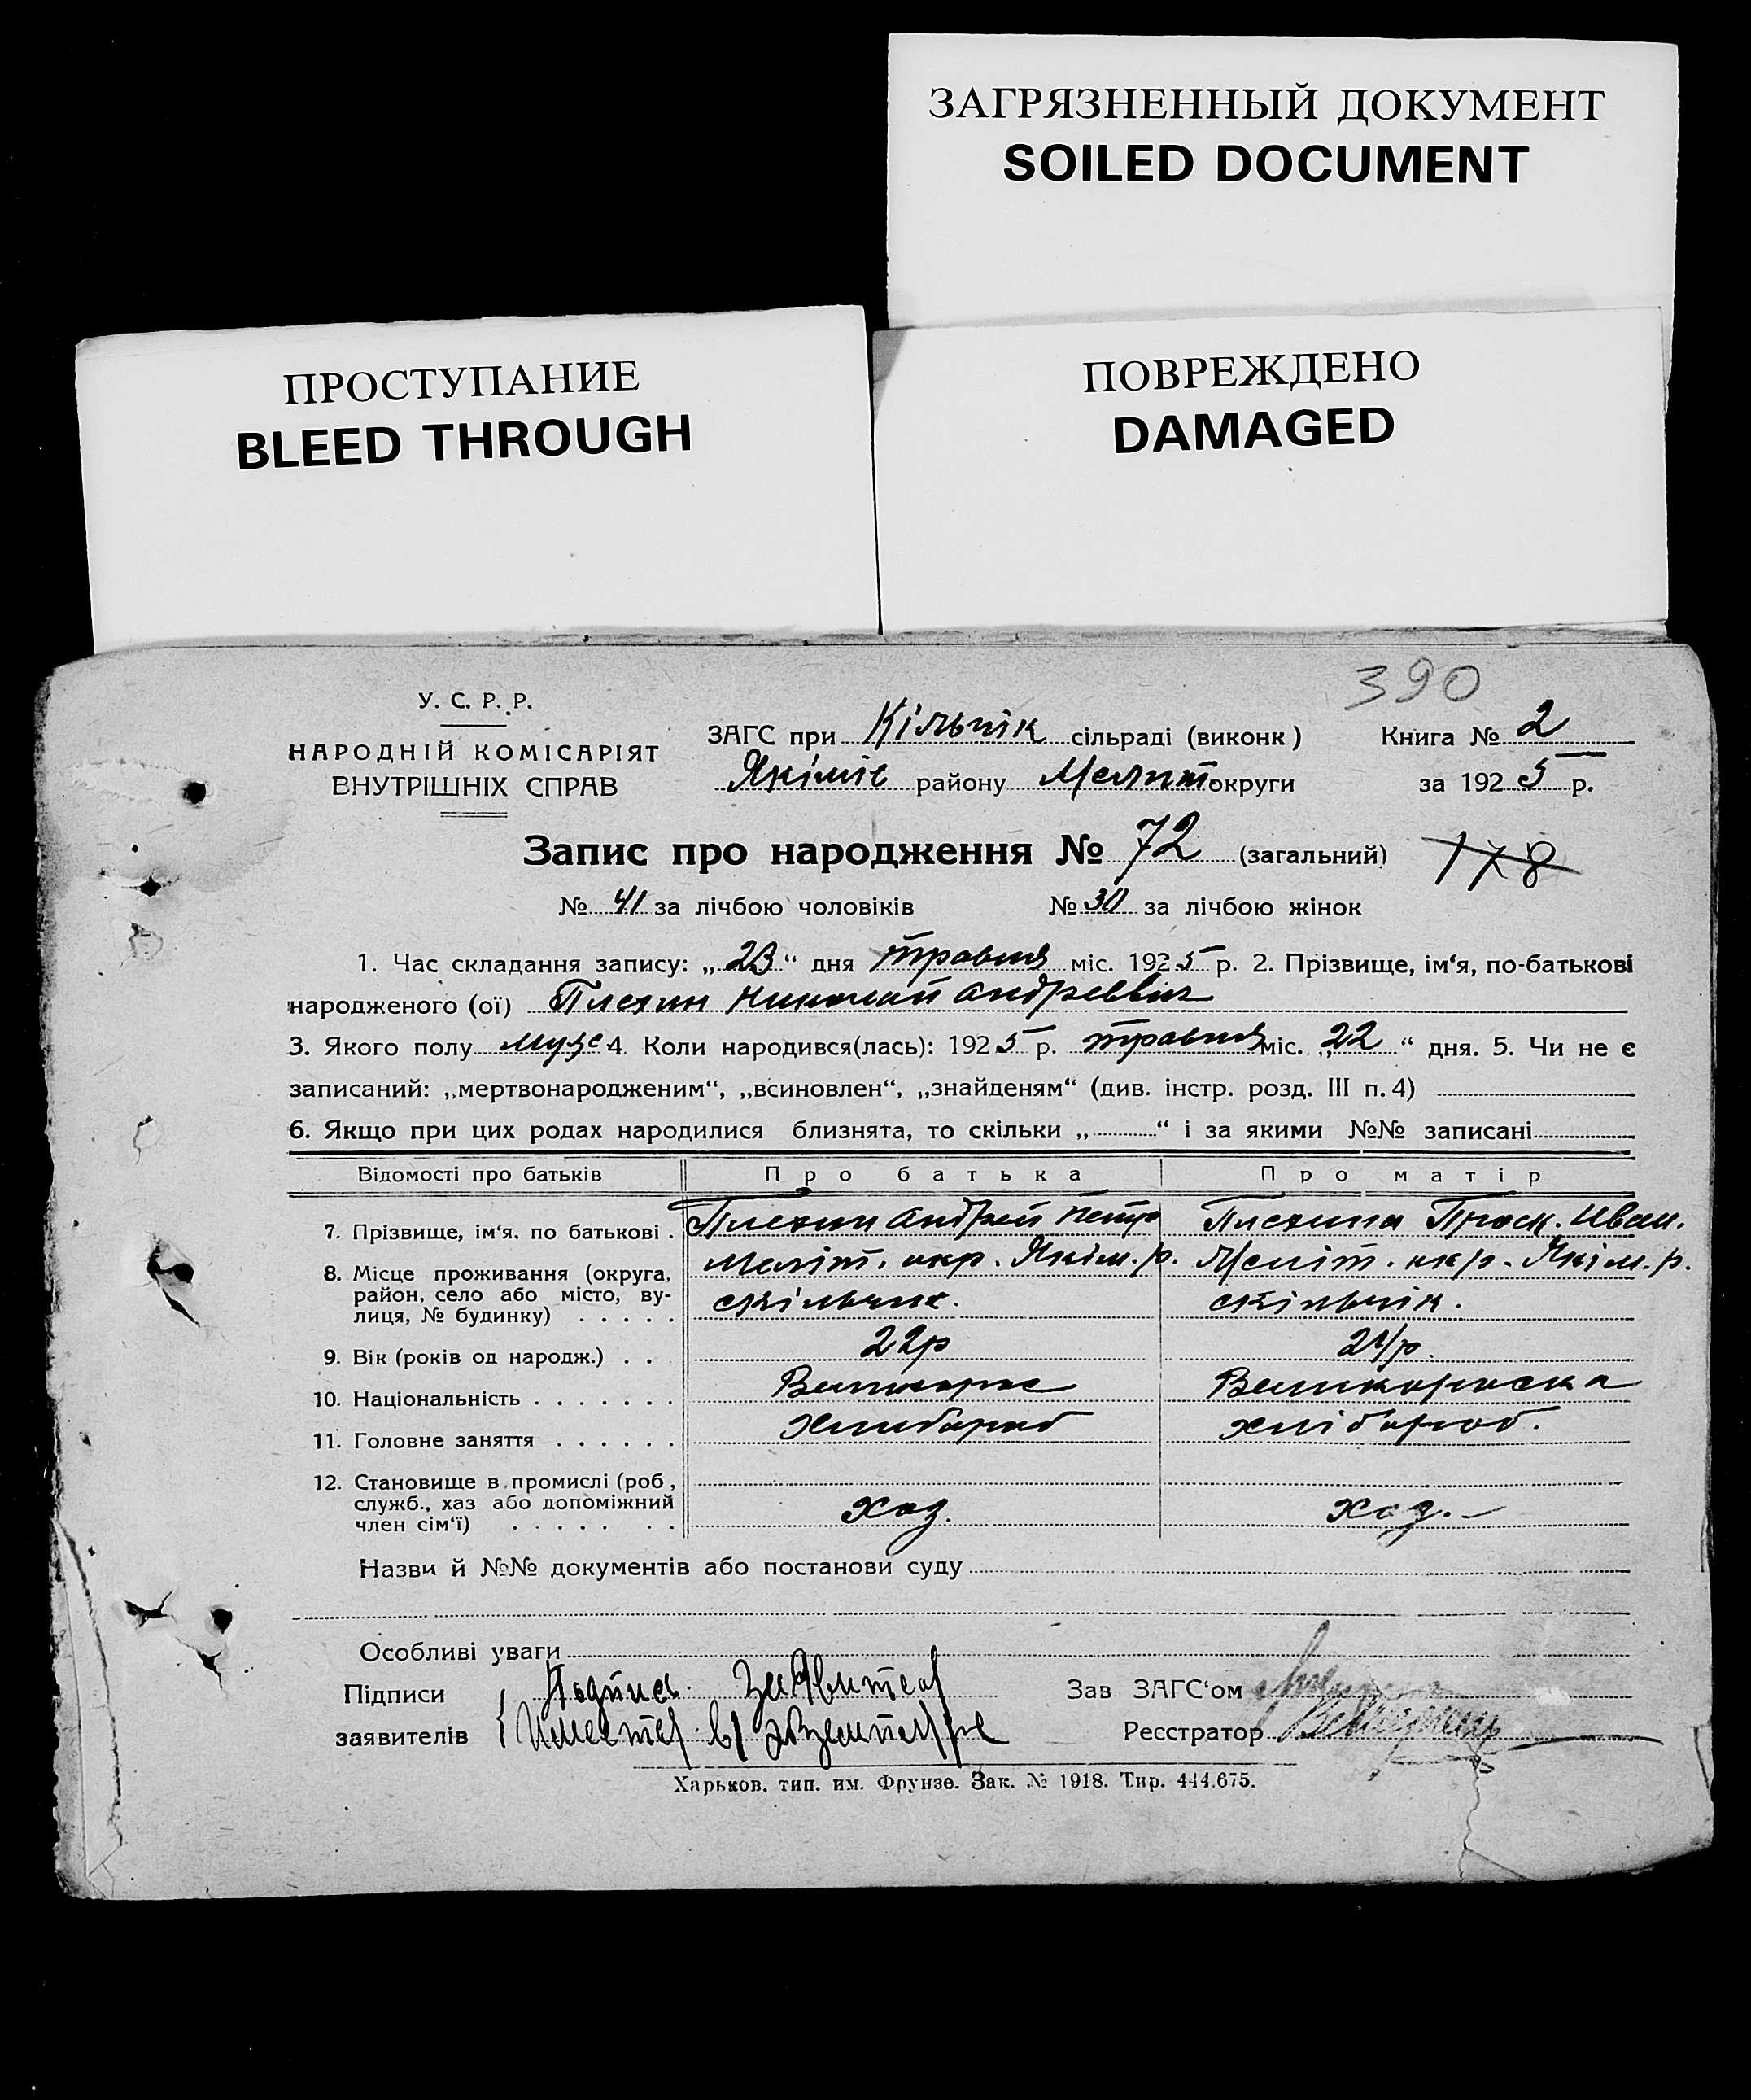 ЗАГРЯЗНЕННЫЙ ДОКУМЕНТ
SOILED DOCUMENT
ПРОСТУПАНИЕ
BLEED THROUGH
ПОВРЕЖДЕНО
DAMAGED
390
У. С. Р. Р.
НАРОДНІЙ КОМІСАРІЯТ
ВНУТРІШНІХ СПРАВ
ЗАГС при Кільчік сільраді (виконк) Книга № 2
Якімів району Мелит округи за 1925 р.
Запис про народження № 72 (загальний) 178
№ 41 за лічбою чоловіків № 30 за лічбою жінок
1. Час складання запису: „23“ дня травня міс. 1925 р. 2. Прізвище, ім‘я, по-батькові
народженого (ої) Плехин Николай Андреевич
3. Якого полу муж 4 Коли народився(лась): 1925 р. травня міс. „22“ дня. 5. Чи не є
записаний: „мертвонародженим“, „всиновлен“, „знайденям“ (див. інстр. розд. III п. 4)
6. Якщо при цих родах народилися близнята, то скільки „ “ і за якими №№ записані
Відомості про батьків Про батька Про матір
7. Прізвище, ім‘я, по батькові . Плехин Андрей Петро Плехина Праск. Иван.
8. Місце проживання (округа, Меліт. окр. Якім. р. Меліт. окр. Якім. р.
район, село або місто, ву- скільчик. скільчік.
лиця, № будинку) . . . . .
9. Вік (років од народж.) . . 22р 24р.
10. Національність . . . . . . . Великорос Великороска
11. Головне заняття . . . . . . Хлибороб хлібороб.
12. Становище в промислі (роб,
служб., хаз або допоміжний хаз. хаз. –
член сім‘ї) . . . . . . .
Назви й №№ документів або постанови суду
Особливі уваги
Підписи Подпись Заявител
заявителів Имеетс в
Зав ЗАГС‘ом
Реєстратор
Харьков, тип. им. Фрунзе. Зак. № 1918. Тир. 444.675.